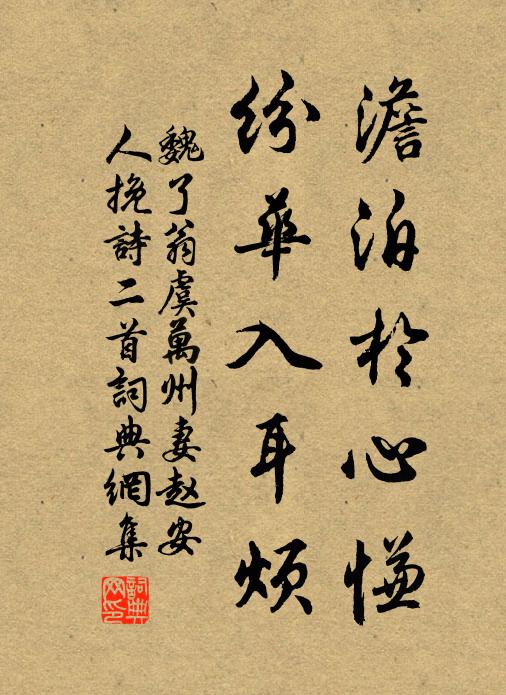 澹泊於心慊
紛華入耳煩
魏了翁虞萬州妻赵安
人挽詩二首詞典網集
詞典网印